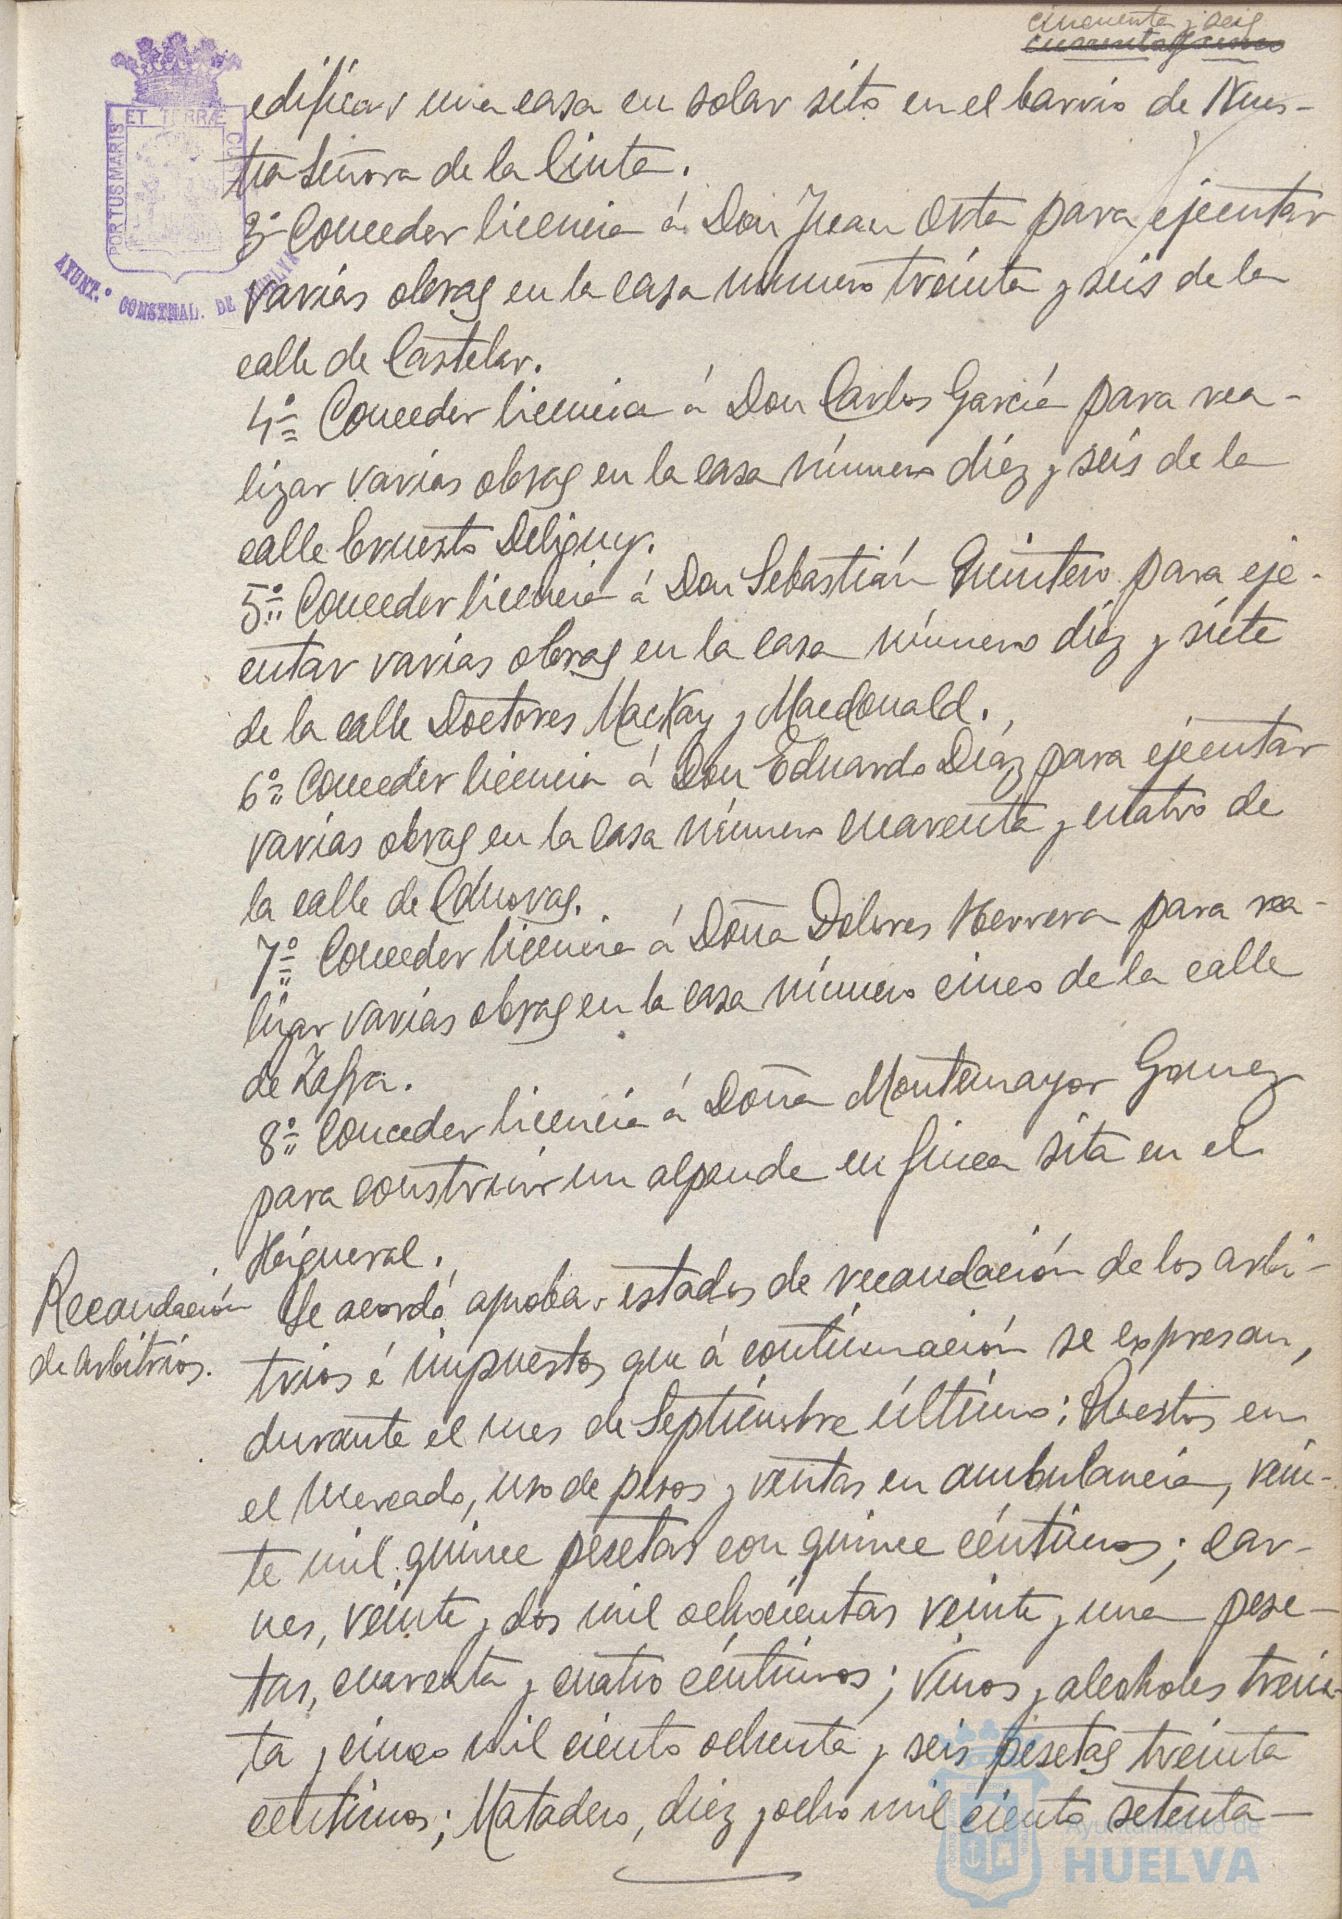 cincuenta y seis
edificar una casa en solar sito en el barrio de Nues-
tra Señora de la Cinta.
3º Conceder licencia á Don Juan Orta para ejecutar
varias obras en la casa número treinta y seis de la
calle de Castelar.
4º Conceder licencia á Don Carlos García para rea-
lizar varias obras en la casa número diez y seis de la
calle Ernesto Deligny.
5º Conceder licencia á Don Sebastián Quintero para eje-
cutar varias obras en la casa número diez y siete
de la calle Doctores MacKay y Macdonald.
6º Conceder licencia á Don Eduardo Díaz para ejecutar
varias obras en la casa número cuarenta y cuatro de
la calle de Cánovas.
7º Conceder licencia á Doña Dolores Herrera para rea-
lizar varias obras en la casa número cinco de la calle
de Zafra.
8º Conceder licencia á Doña Montemayor Gomez
para construir un alpende en finca sita en el
Higueral.
Recaudación
de arbitrios.
Se acordó aprobar estados de recaudación de los arbi-
trios é impuestos que á continuación se expresan,
durante el mes de Septiembre último: Puestos en
el Mercado, uso de pesos y ventas en ambulancia, vein-
te mil quince pesetas con quince céntimos; car-
nes, veinte y dos mil ochocientas veinte y una pese-
tas, cuarenta y cuatro céntimos; vinos y alcoholes trein-
ta y cinco mil ciento ochenta y seis pesetas treinta
centimos; Matadero, diez y ocho mil ciento setenta-
PORTUS MARIS
ET TERRÆ
AYUNT.º CONSTNAL. DE HUELVA
Ayuntamiento de
HUELVA